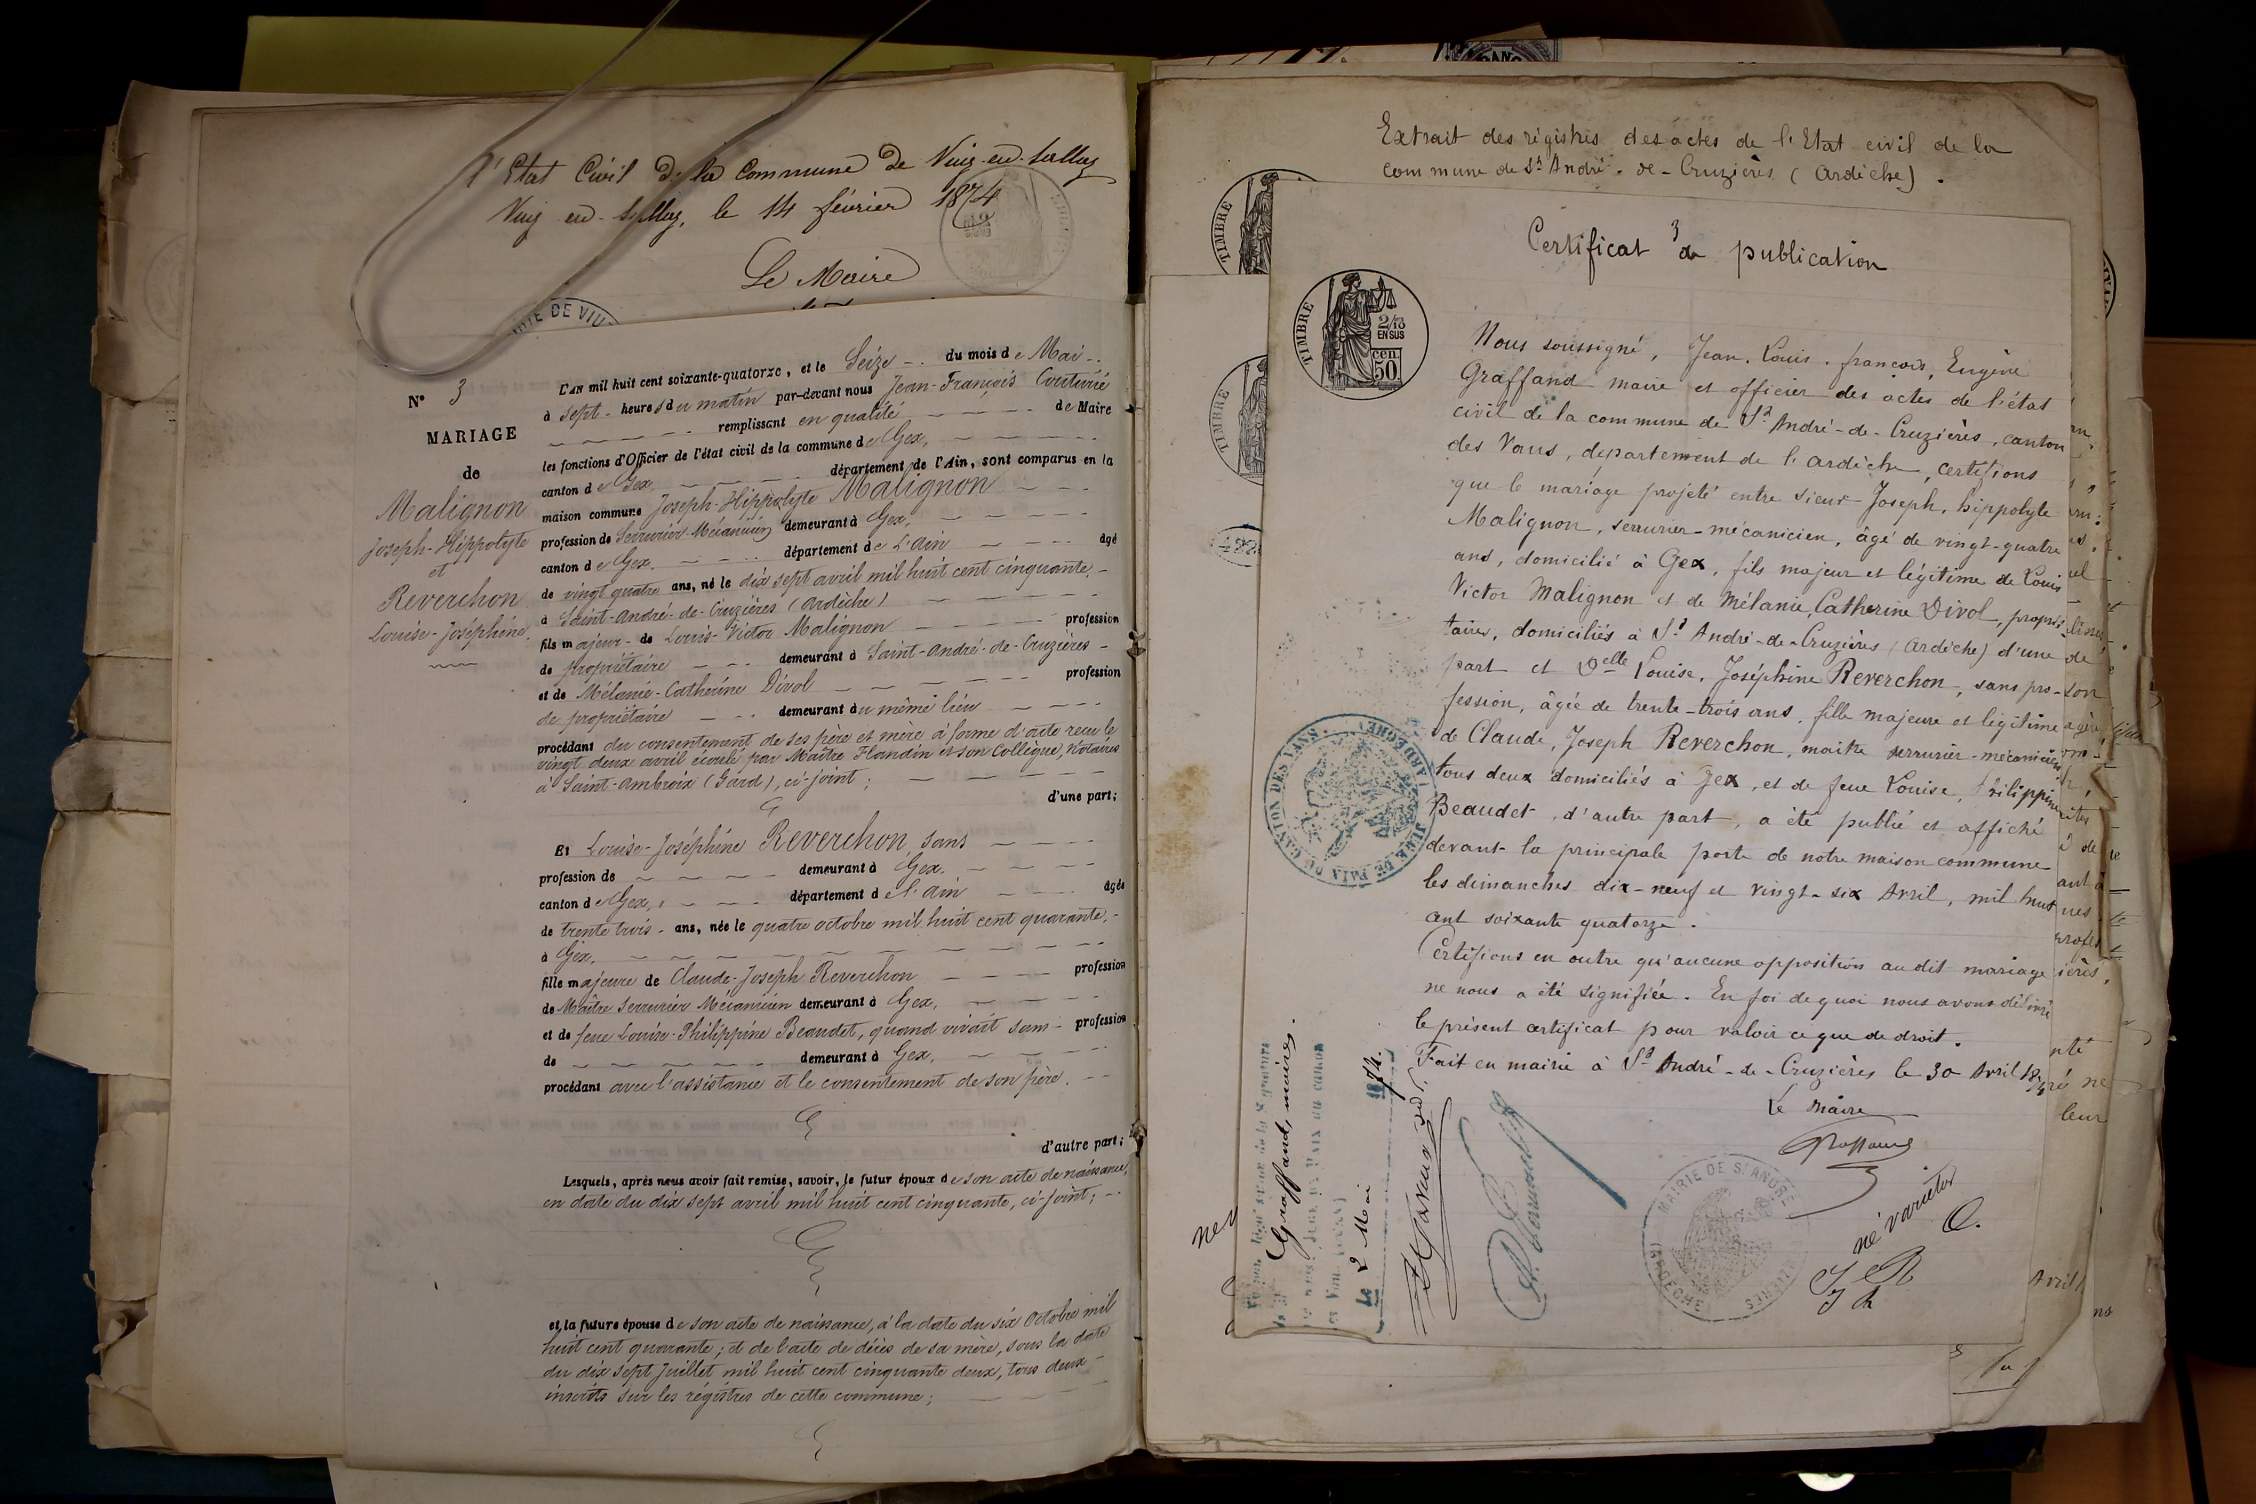 l'Etat Civil de la Commune de Viuz-en-Sallaz
Viuz-en-Sallaz, le 14 février 1874
Le Maire
MAIRIE DE VIU
N° 3
MARIAGE
de
Malignon
Joseph-Hippolyte
et
Reverchon
Louise-Joséphine.
L'AN mil huit cent soixante-quatorze, et le Seize du mois de Mai
à sept heures du matin par-devant nous Jean-François
remplissant en qualité de Maire
les fonctions d'Officier de l'état civil de la commune de Gex,
canton de Gex département de l'Ain, sont comparus en la
maison commune Joseph-Hippolyte Malignon
profession de Serrurier-Mécanicien demeurant à Gex,
canton de Gex. département de L'Ain âgé
de vingt quatre ans, né le dix sept avril mil huit cent cinquante,
à Saint-André-de-Cruzières (Ardèche)
fils majeur de Louis-Victor Malignon profession
de propriétaire demeurant à Saint-André-de-Cruzières
et de Mélanie-Catherine Divol profession
de propriétaire demeurant au même lieu
procédant du consentement de ses père et mère à forme d'acte reçu le
vingt deux avril écoulé par Maître Flandin et son Collègue, Notaires
à Saint-Ambroix (Gard), ci-joint;
d'une part;
Et Louise-Joséphine Reverchon, sans
profession de demeurant à Gex.
canton de Gex, département de l'Ain âgée
de trente trois ans, née le quatre octobre mil huit cent quarante,
à Gex,
fille majeure de Claude-Joseph Reverchon profession
de Maître Serrurier Mécanicien demeurant à Gex,
et de feue Louise-Philippine Beaudet, quand vivait sans profession
de demeurant à Gex,
procédant avec l'assistance et le consentement de son père.
d'autre part;
Lesquels, après nous avoir fait remise, savoir, le futur époux de son acte de naissance,
en date du dix sept avril mil huit cent cinquante, ci-joint;
et, la future épouse de son acte de naissance, à la date du six Octobre mil
huit cent quarante; et de l'acte de décès de sa mère, sous la date
du dix sept Juillet mil huit cent cinquante deux, tous deux
inscrits sur les régistres de cette commune;
Extrait des régistres des actes de l'Etat civil de la
commune de St André-de-Cruzières (Ardèche).
TIMBRE
TIMBRE
Certificat de publication
3
TIMBRE
2/10
EN SUS
cen.
50
Nous soussigné, Jean, Louis, françois, Eugène
Graffand maire et officier des actes de l'état
civil de la commune de St André-de-Cruzières, canton
des Vans, département de l'ardèche, certifions
que le mariage projeté entre sieur Joseph, hippolyte
Malignon, serrurier-mécanicien, âgé de vingt-quatre
ans, domicilié à Gex, fils majeur et légitime de Louis
Victor Malignon et de Mélanie, Catherine Divol, proprié-
taires, domiciliés à St André-de-Cruzières (Ardèche) d'une
part et Delle Louise, Joséphine Reverchon, sans pro-
fession, âgée de trente-trois ans, fille majeure et légitime
de Claude, Joseph Reverchon, maître serrurier-mécanicien
tous deux domiciliés à Gex, et de feue Louise, Philippine
Beaudet, d'autre part, a été publié et affiché
devant la principale porte de notre maison commune
les dimanches dix-neuf et vingt-six Avril, mil huit
cent soixante quatorze.
Certifions en outre qu'aucune opposition au dit mariage
ne nous a été signifiée. En foi de quoi nous avons délivré
le présent certificat pour valoir ce que de droit.
Fait en mairie à St André-de-Cruzières le 30 Avril 1874
Le Maire
MAIRIE DE St ANDRE
(ARDECHE)
né varietur
JUGE DE PAIX DU CANTON DES VANS
(ARDECHE)
Graffand, maire,
Le 2 Mai 1874.